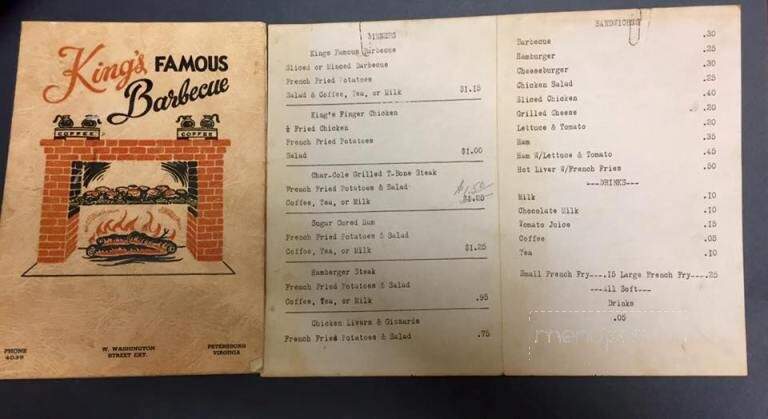 King's FAMOUS
Barbecue
COFFEE
COFFEE
PHONE
4039
W. WASHINGTON
STREET EXT.
PETERSBURG
VIRGINIA
DINNERS
Kings Famous Barbecue
Sliced or Minced Barbecue
French Fried Potatoes
Salad & Coffee, Tea, or Milk $1.15
King's Finger Chicken
½ Fried Chicken
French Fried Potatoes
Salad $1.00
Char-Cole Grilled T-Bone Steak
French Fried Potatoes & Salad $1.50
Coffee, Tea, or Milk
Sugar Cured Ham
French Fried Potatoes & Salad
Coffee, Tea, or Milk $1.25
Hamberger Steak
French Fried Potatoes & Salad
Coffee, Tea, or Milk .95
Chicken Livers & Gizzards
French Fried Potatoes & Salad .75
SANDWICHES
Barbecue .30
Hamburger .25
Cheeseburger .30
Chicken Salad .25
Sliced Chicken .40
Grilled Cheese .20
Lettuce & Tomato .20
Ham .35
Ham W/Lettuce & Tomato .45
Hot Liver W/French Fries .50
---DRINKS---
Milk .10
Chocolate Milk .10
Tomato Juice .15
Coffee .05
Tea .10
Small French Fry----.15 Large French Fry----.25
---All Soft---
Drinks
.05